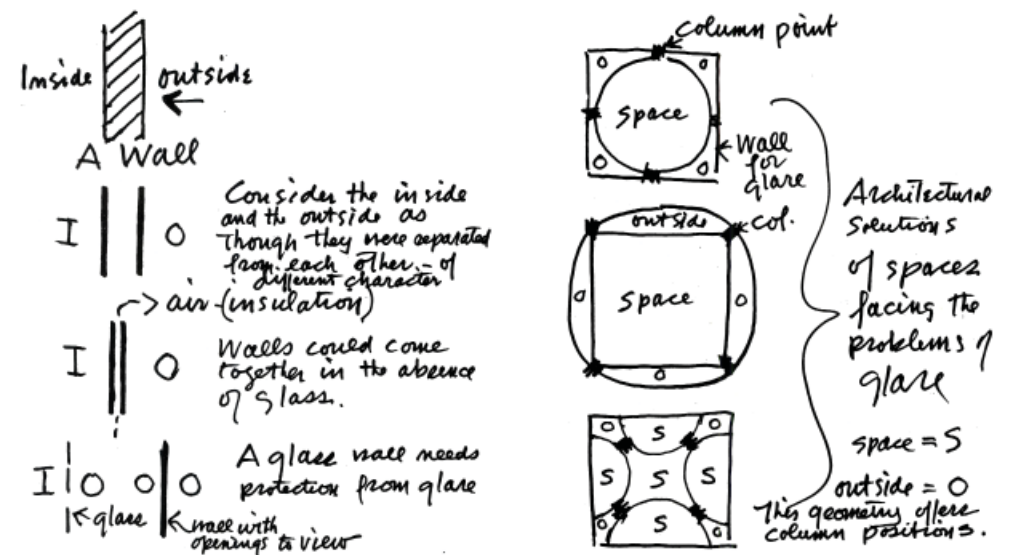 Inside
outside
A Wall
I
O
Consider the inside
and the outside as
though they were separated
from each other. - of
different character
air - (insulation)
I
O
Walls could come
together in the absence
of glass.
I O O O
A glass wall needs
protection from glare
glass
wall with
openings to view
column point
O O
space
O O
Wall
for
glare
outside
col.
O
space
O
O
O S O
S S S
O S O
Architectural
solutions
of spaces
facing the
problems of
glare
space = S
outside = O
This geometry offers
column positions.